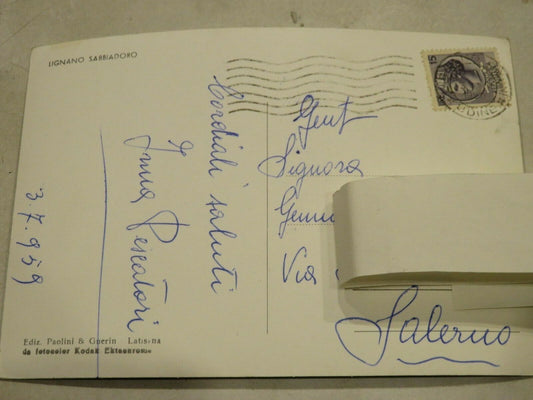 LIGNANO SABBIADORO
Cordiali saluti
Irma Pescatori
3.7.959
Ediz. Paolini & Guerin Latisana
da fotocolor Kodak Ektachrome
15
UDINE
Gent
Signora
Via
Salerno